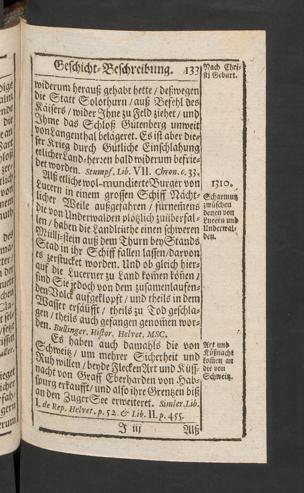 Geschicht-Beschreibung. 133
Nach Chri-
sti Geburt.
widerum herauß gehabt hette / deßwegen
die Statt Solothurn / auß Befehl des
Kaisers / wider Ihne zu Feld ziehet / und
Ihme das Schloß Gutenberg unweit
von Langenthal belägeret. Es ist aber die-
ser Krieg durch Gütliche Einschlahung
etlicher Land-herren bald widerum befrie-
det worden. Stumpf. Lib. VII. Chron. c. 33.
Alß etliche wol-mundierte Burger von
Lucern in einem grossen Schiff Nächt-
licher Weile außgefahren / fürnemens
die von Underwalden plötzlich zu überfal-
len / haben die Landleüthe einen schweren
Mülli-stein auß dem Thurn bey Stands
Stad in ihr Schiff fallen lassen / darvon
es zerstucket worden. Und ob gleich hier-
auf die Lucerner zu Land komen könen /
sind Sie jedoch von dem zusamenlaufen-
den Volck aufgeklopft / und theils in dem
Wasser ersäufft / theils zu Tod geschla-
gen / theils auch gefangen genomen wor-
den. Bullinger. Histor. Helvet. MSC.
Es haben auch damahls die von
Schweitz / um mehrer Sicherheit und
Ruh willen / beyde Flecken Art und Küß-
nacht von Graff Eberharden von Hab-
spurg erkaufft / und also ihre Grentzen biß
an den Zuger See erweiteret. Simler. Lib.
I. de Rep. Helvet. p. 52. & Lib. II. p. 455.
J iij Alß
1310.
Scharmutz
zwüschen
denen von
Lucern und
Underwal-
den.
Art und
Küßnacht
komen an
die von
Schweitz.